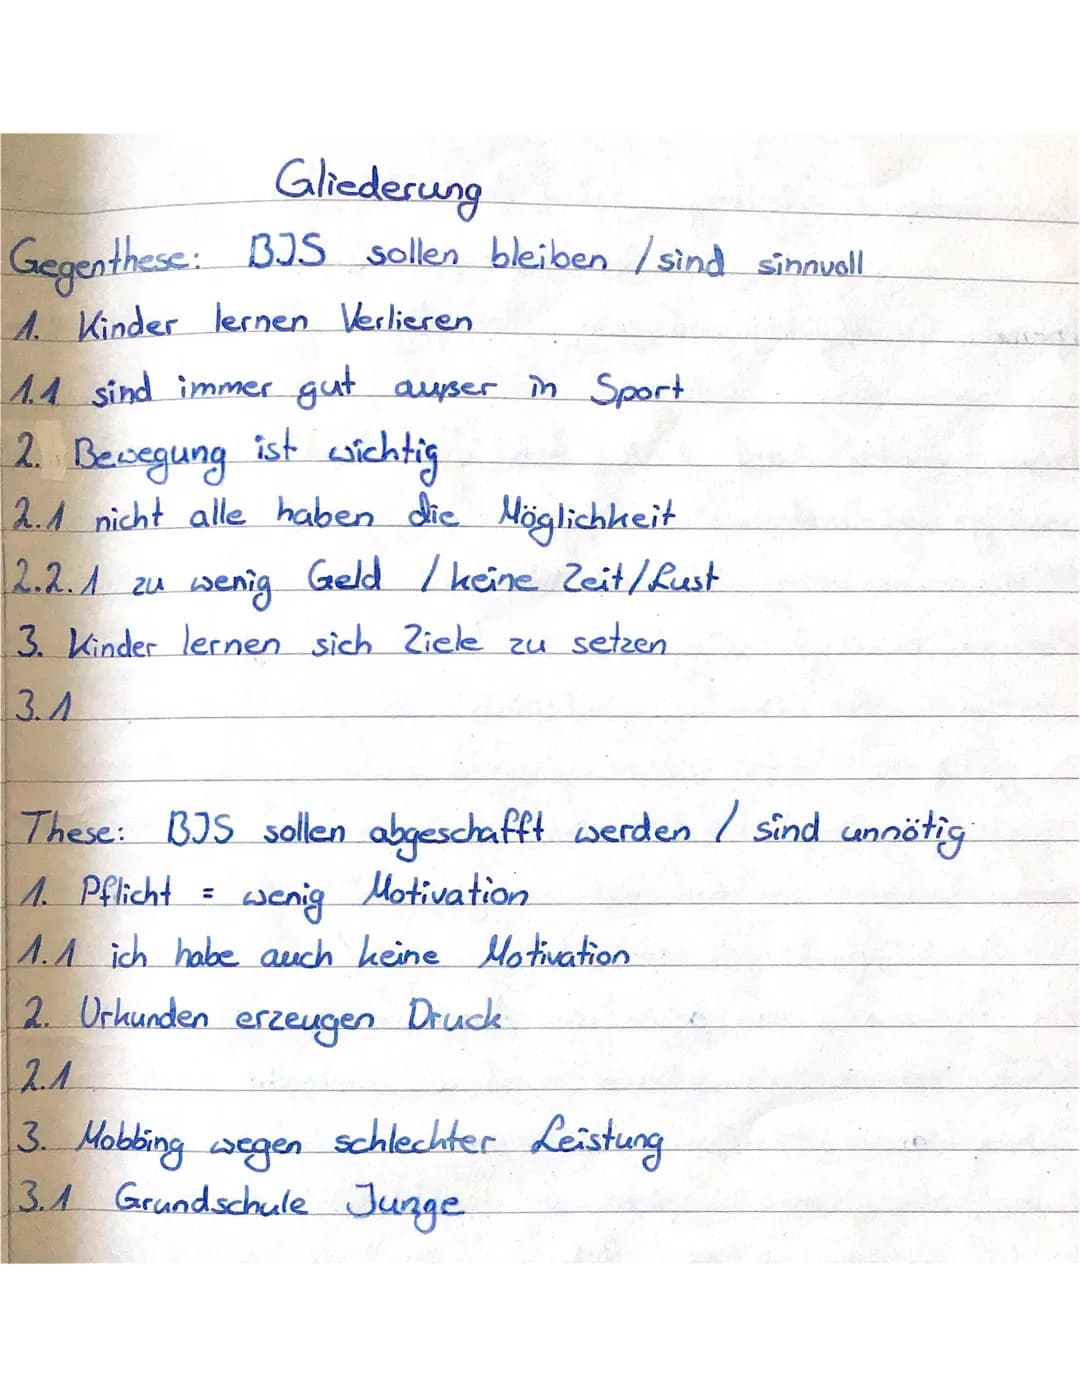 Gliederung
Gegenthese: BJS sollen bleiben / sind sinnvoll
1. Kinder lernen Verlieren
1.1 sind immer gut außer in Sport
2. Bewegung ist wichtig
2.1 nicht alle haben die Möglichkeit
2.2.1 zu wenig Geld / keine Zeit/Lust
3. Kinder lernen sich Ziele zu setzen
3.1
These: BJS sollen abgeschafft werden / sind unnötig
1. Pflicht = wenig Motivation
1.1 ich habe auch keine Motivation
2. Urkunden erzeugen Druck
2.1
3. Mobbing wegen schlechter Leistung
3.1 Grundschule Junge